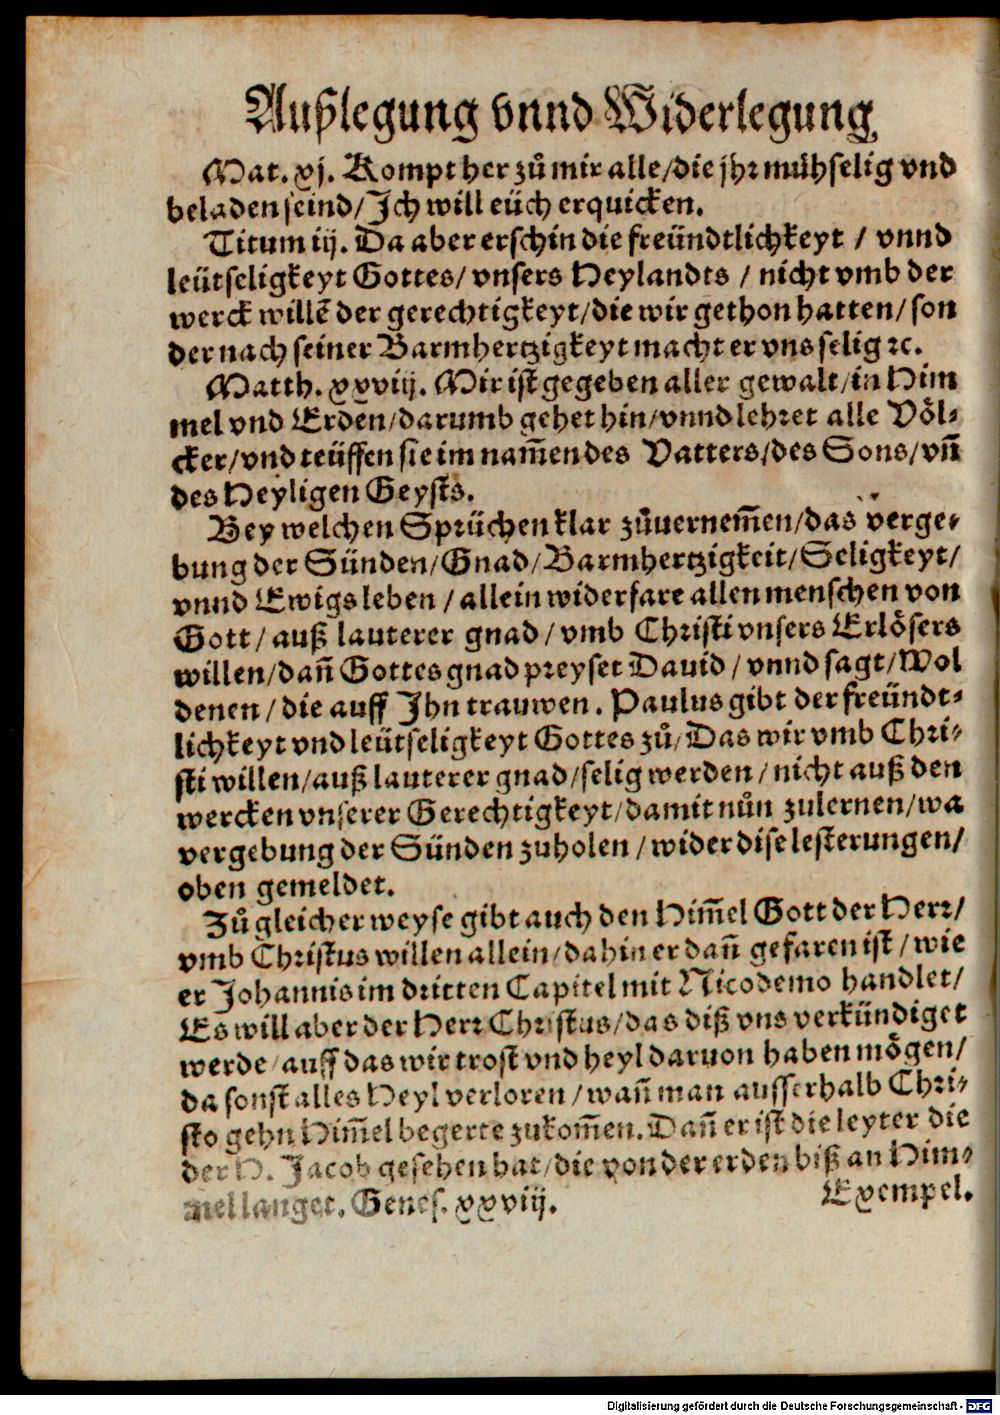 Außlegung vnnd Widerlegung
Mat. xj. Kompt her zů mir alle/die jhr mühselig vnd
beladen seind/Ich will eüch erquicken.
Titum iij. Da aber erschin die freündtlichkeyt / vnnd
leütseligkeyt Gottes/ vnsers Heylandts / nicht vmb der
werck willẽ der gerechtigkeyt/die wir gethon hatten/ son
der nach seiner Barmhertzigkeyt macht er vns selig ꝛc.
Matth. xxviij. Mir ist gegeben aller gewalt/in Him
mel vnd Erden/darumb gehet hin/vnnd lehret alle Völ-
cker/vnd teüffen sie im nam̃en des Vatters/des Sons/vñ
des Heyligen Geysts.
Bey welchen Sprüchen klar zůuernem̃en/das verge-
bung der Sünden/Gnad/Barmhertzigkeit/Seligkeyt/
vnnd Ewigs leben / allein widerfare allen menschen von
Gott/ auß lauterer gnad/vmb Christi vnsers Erlösers
willen/dañ Gottes gnad preyset Dauid / vnnd sagt/Wol
denen/die auff Ihn trauwen. Paulus gibt der freündt-
lichkeyt vnd leütseligkeyt Gottes zů/Das wir vmb Chri-
sti willen/auß lauterer gnad/selig werden/nicht auß den
wercken vnserer Gerechtigkeyt/damit nůn zulernen/wa
vergebung der Sünden zuholen/wider dise lesterungen/
oben gemeldet.
Zů gleicher weyse gibt auch den Him̃el Gott der Herr/
vmb Christus willen allein/dahin er dañ gefaren ist/wie
er Johannis im dritten Capitel mit Nicodemo handlet/
Es will aber der Herr Christus/das diß vns verkündiget
werde/auff das wir trost vnd heyl daruon haben mögen/
da sonst alles Heyl verloren/wañ man ausserhalb Chri-
sto gehn Him̃el begerte zukom̃en. Dañ er ist die leyter die
der H. Jacob gesehen hat/die von der erden biß an Him-
mel langet. Genes. xxviij.
Exempel.
Digitalisierung gefördert durch die Deutsche Forschungsgemeinschaft - DFG